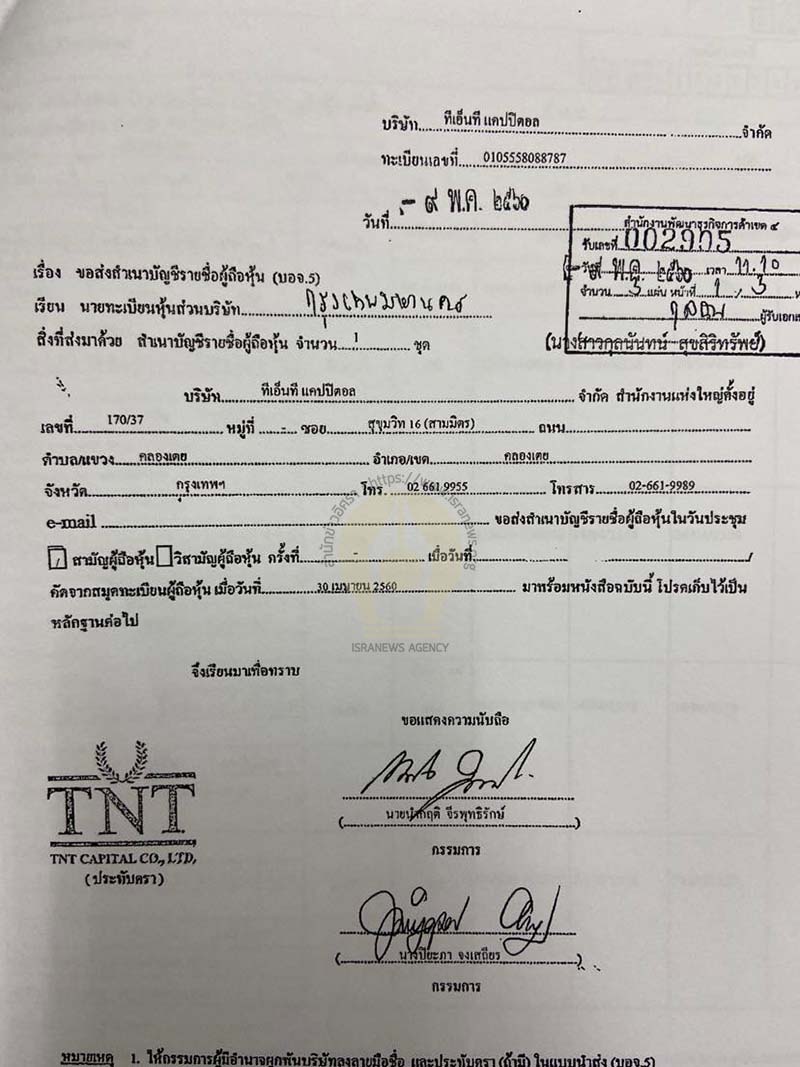 บริษัท ทีเอ็นที แคปปิตอล จำกัด
ทะเบียนเลขที่ 0105558088787
วันที่ - ๙ พ.ค. ๒๕๖๐
สำนักงานพัฒนาธุรกิจการค้าเขต ๔
รับเลขที่ 002905
วันที่ พ.ค. ๒๕๖๐ เวลา 11.10
จำนวน 3 แผ่น หน้าที่ 1 / 3
ผู้รับเอกส
(นางสาวกุลนันทน์ สุขสิริทรัพย์)
เรื่อง ขอส่งสำเนาบัญชีรายชื่อผู้ถือหุ้น (บอจ.5)
เรียน นายทะเบียนหุ้นส่วนบริษัท กรุงเทพมหานคร
สิ่งที่ส่งมาด้วย สำเนาบัญชีรายชื่อผู้ถือหุ้น จำนวน 1 ชุด
บริษัท ทีเอ็นที แคปปิตอล จำกัด สำนักงานแห่งใหญ่ตั้งอยู่
เลขที่ 170/37 หมู่ที่ - ซอย สุขุมวิท 16 (สามมิตร) ถนน
ตำบล/แขวง คลองเตย อำเภอ/เขต คลองเตย
จังหวัด กรุงเทพฯ โทร. 02 661 9955 โทรสาร 02-661-9989
e-mail ขอส่งสำเนาบัญชีรายชื่อผู้ถือหุ้นในวันประชุม
สามัญผู้ถือหุ้น วิสามัญผู้ถือหุ้น ครั้งที่ - เมื่อวันที่
คัดจากสมุดทะเบียนผู้ถือหุ้น เมื่อวันที่ 30 เมษายน 2560 มาพร้อมหนังสือฉบับนี้ โปรดเก็บไว้เป็น
หลักฐานต่อไป
ISRANEWS AGENCY
จึงเรียนมาเพื่อทราบ
ขอแสดงความนับถือ
TNT
TNT CAPITAL CO., LTD,
(ประทับตรา)
(นายนำกฤติ จีรพุทธิรักษ์)
กรรมการ
(นางปิยะภา จงเสถียร)
กรรมการ
หมายเหตุ 1. ให้กรรมการผู้มีอำนาจผูกพันบริษัทลงลายมือชื่อ และประทับตรา (ถ้ามี) ในแบบนำส่ง (บอจ.5)